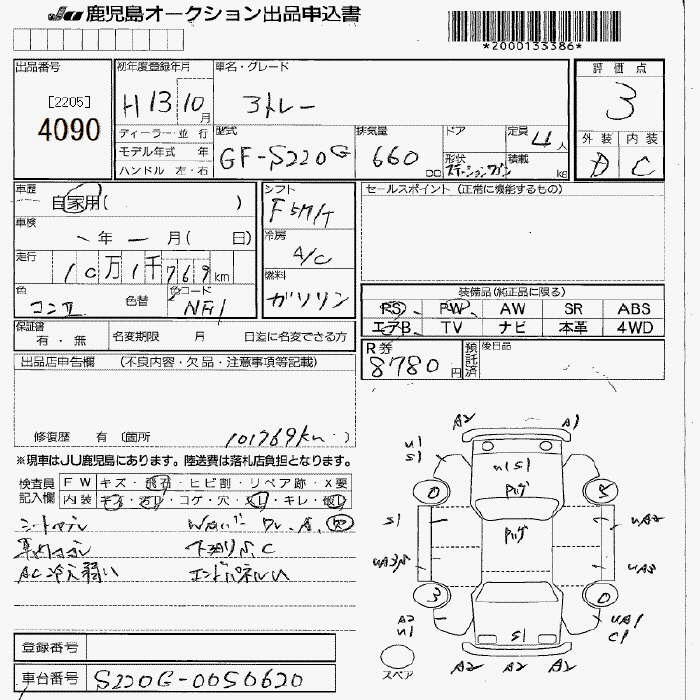 JU 鹿児島オークション出品申込書
*2000133386*
出品番号
[2205]
4090
初年度登録年月
H 13 10月
車名・グレード
ストレー
評価点
3
外装 内装
D C
ディーラー・並行
モデル年式 年
ハンドル 左・右
型式
GF-S220G
排気量
660 cc
ドア
形状
ステーションワゴン
定員
4人
積載
kg
車歴
自家用( )
車検
年 月( 日)
走行
10万1千769km
色
コンII
色替
色コード
シフト
F5M/T
冷房
A/C
燃料
ガソリン
セールスポイント (正常に機能するもの)
装備品(純正品に限る)
PS PW AW SR ABS
エアB. TV ナビ 本革 4WD
保証書
有・無
名変期限 月 日迄に名変できる方
R券
8780円
預託済
後日品
出品店申告欄 (不良内容・欠品・注意事項等記載)
修復歴 有 (箇所 101769km )
※現車はJU鹿児島にあります。陸送費は落札店負担となります。
検査員記入欄
FW キズ・飛石・ヒビ割・リペア跡・X要
内装 キズ・汚れ・コゲ・穴・スレ・キレ・破れ
AC冷え弱い
下廻りS C
エンドパネルU
A2 A1
U1
S1
U1S1
0 5
S1
UA2
UA3
3 0
A2
U1
UA1
C1
S1
A2 A2 A2
スペア
登録番号
車台番号 S220G-0050620